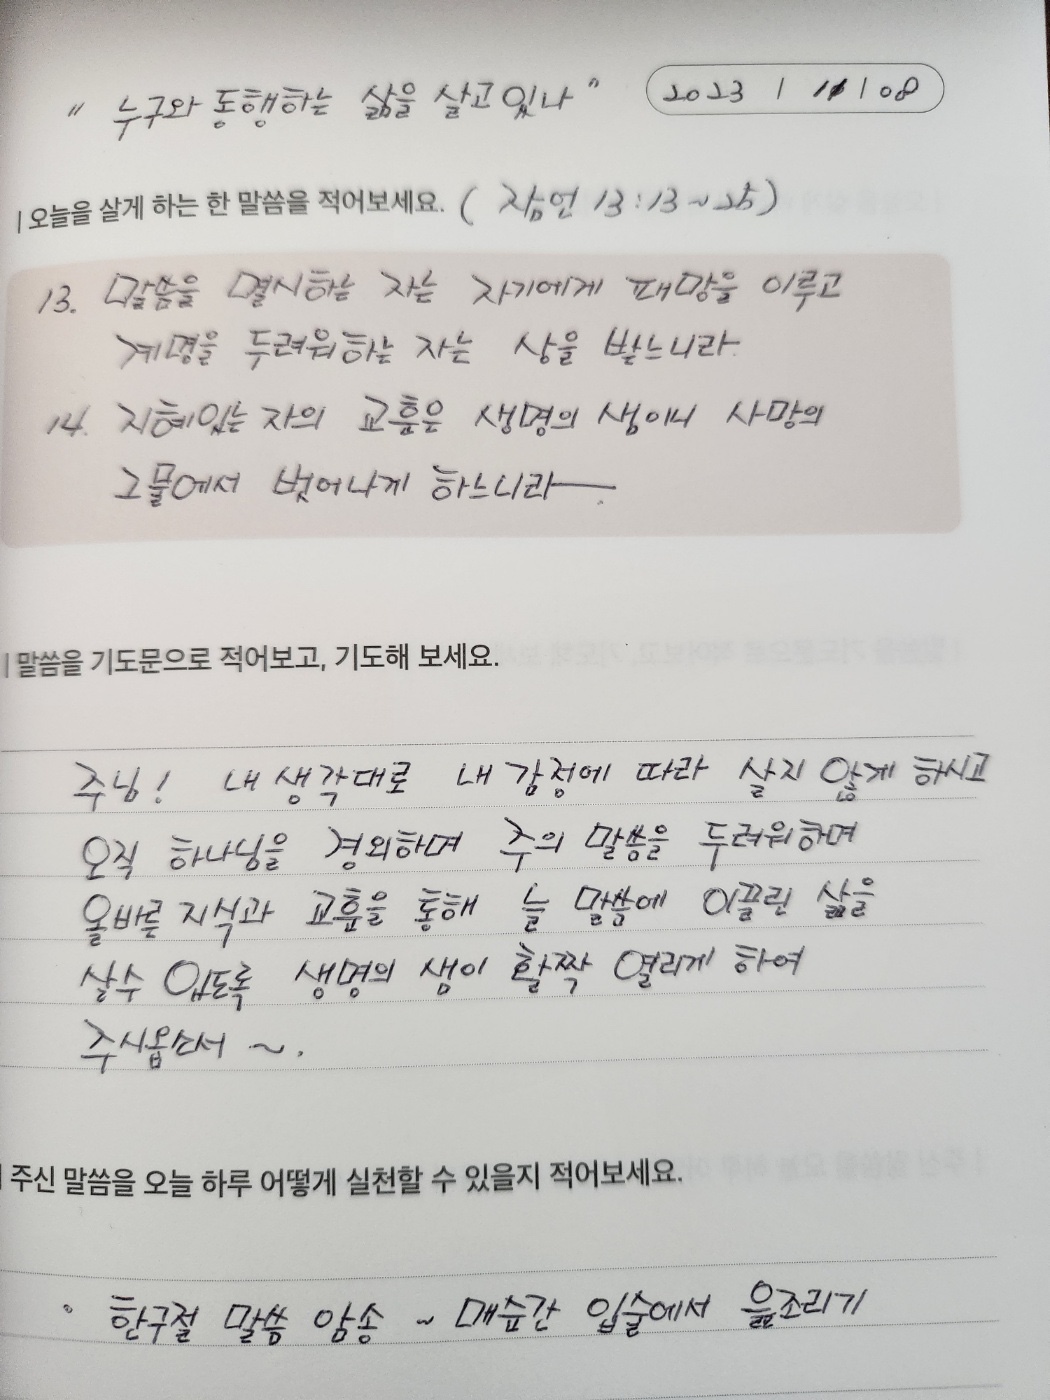 " 누구와 동행하는 삶을 살고 있나 "
2023 | 11 | 08
| 오늘을 살게 하는 한 말씀을 적어보세요. ( 잠언 13:13~25)
13. 말씀을 멸시하는 자는 자기에게 패망을 이루고
계명을 두려워하는 자는 상을 받느니라
14. 지혜있는 자의 교훈은 생명의 샘이니 사망의
그물에서 벗어나게 하느니라
| 말씀을 기도문으로 적어보고, 기도해 보세요.
주님! 내 생각대로 내 감정에 따라 살지 않게 하시고
오직 하나님을 경외하며 주의 말씀을 두려워하며
올바른 지식과 교훈을 통해 늘 말씀에 이끌린 삶을
살수 있도록 생명의 샘이 활짝 열리게 하여
주시옵소서 ~.
| 주신 말씀을 오늘 하루 어떻게 실천할 수 있을지 적어보세요.
◦ 한구절 말씀 암송 ~ 매순간 입술에서 읊조리기